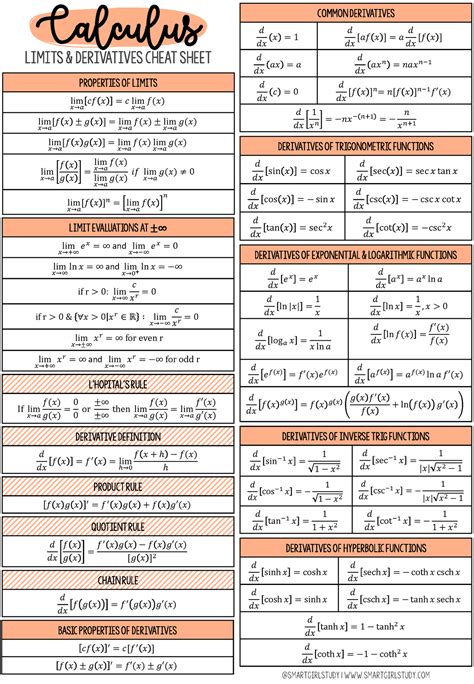 Calculus
LIMITS & DERIVATIVES CHEAT SHEET
PROPERTIES OF LIMITS
lim_{x→a}[cf(x)] = c lim_{x→a} f(x)
lim_{x→a}[f(x) ± g(x)] = lim_{x→a} f(x) ± lim_{x→a} g(x)
lim_{x→a}[f(x)g(x)] = lim_{x→a} f(x) lim_{x→a} g(x)
lim_{x→a}[f(x)/g(x)] = lim_{x→a} f(x) / lim_{x→a} g(x) if lim_{x→a} g(x) ≠ 0
lim_{x→a}[f(x)]^n = [lim_{x→a} f(x)]^n
LIMIT EVALUATIONS AT ±∞
lim_{x→+∞} e^x = ∞ and lim_{x→−∞} e^x = 0
lim_{x→∞} ln x = ∞ and lim_{x→0⁺} ln x = −∞
if r > 0: lim_{x→∞} c/x^r = 0
if r > 0 & {∀x > 0|x^r ∈ ℝ}: lim_{x→−∞} c/x^r = 0
lim_{x→±∞} x^r = ∞ for even r
lim_{x→+∞} x^r = ∞ and lim_{x→−∞} x^r = −∞ for odd r
L'HOPITAL'S RULE
If lim_{x→a} f(x)/g(x) = 0/0 or ±∞/±∞ then lim_{x→a} f(x)/g(x) = lim_{x→a} f′(x)/g′(x)
DERIVATIVE DEFINITION
d/dx[f(x)] = f′(x) = lim_{h→0} (f(x + h) − f(x))/h
PRODUCT RULE
[f(x)g(x)]′ = f′(x)g(x) + f(x)g′(x)
QUOTIENT RULE
d/dx[f(x)/g(x)] = (f′(x)g(x) − f(x)g′(x))/[g(x)]²
CHAIN RULE
d/dx[f(g(x))] = f′(g(x))g′(x)
BASIC PROPERTIES OF DERIVATIVES
[cf(x)]′ = c[f′(x)]
[f(x) ± g(x)]′ = f′(x) ± g′(x)
COMMON DERIVATIVES
d/dx(x) = 1
d/dx[af(x)] = a d/dx[f(x)]
d/dx(ax) = a
d/dx(ax^n) = nax^{n−1}
d/dx(c) = 0
d/dx[f(x)]^n = n[f(x)]^{n−1}f′(x)
d/dx[1/x^n] = −nx^{−(n+1)} = −n/x^{n+1}
DERIVATIVES OF TRIGONOMETRIC FUNCTIONS
d/dx[sin(x)] = cos x
d/dx[sec(x)] = sec x tan x
d/dx[cos(x)] = −sin x
d/dx[csc(x)] = −csc x cot x
d/dx[tan(x)] = sec² x
d/dx[cot(x)] = −csc² x
DERIVATIVES OF EXPONENTIAL & LOGARITHMIC FUNCTIONS
d/dx[e^x] = e^x
d/dx[a^x] = a^x ln a
d/dx[ln |x|] = 1/x
d/dx[ln x] = 1/x, x > 0
d/dx[log_a x] = 1/(x ln a)
d/dx[ln f(x)] = f′(x)/f(x)
d/dx[e^{f(x)}] = f′(x)e^{f(x)}
d/dx[a^{f(x)}] = a^{f(x)} ln a f′(x)
d/dx[f(x)^{g(x)}] = f(x)^{g(x)}(g(x)f′(x)/f(x) + ln(f(x)) g′(x))
DERIVATIVES OF INVERSE TRIG FUNCTIONS
d/dx[sin⁻¹ x] = 1/√(1 − x²)
d/dx[sec⁻¹ x] = 1/(|x|√(x² − 1))
d/dx[cos⁻¹ x] = −1/√(1 − x²)
d/dx[csc⁻¹ x] = −1/(|x|√(x² − 1))
d/dx[tan⁻¹ x] = 1/(1 + x²)
d/dx[cot⁻¹ x] = −1/(1 + x²)
DERIVATIVES OF HYPERBOLIC FUNCTIONS
d/dx[sinh x] = cosh x
d/dx[sech x] = −coth x csch x
d/dx[cosh x] = sinh x
d/dx[csch x] = −tanh x sech x
d/dx[tanh x] = 1 − tanh² x
d/dx[coth x] = −1 − coth² x
@SMARTGIRLSTUDY | WWW.SMARTGIRLSTUDY.COM